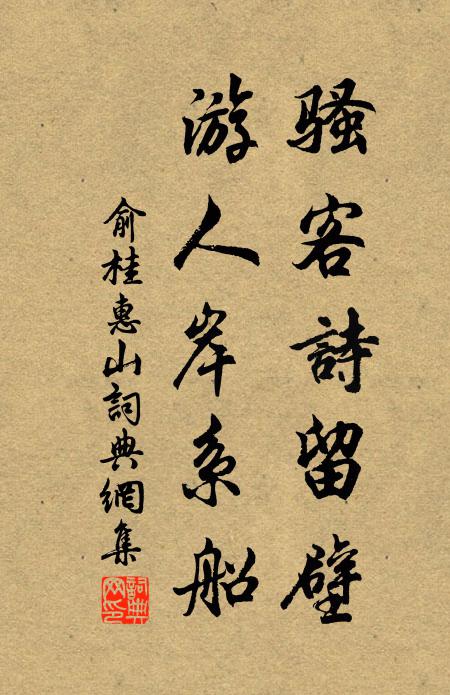 骚客詩留壁
游人岸系船
俞桂惠山詞典網集
詞典网印